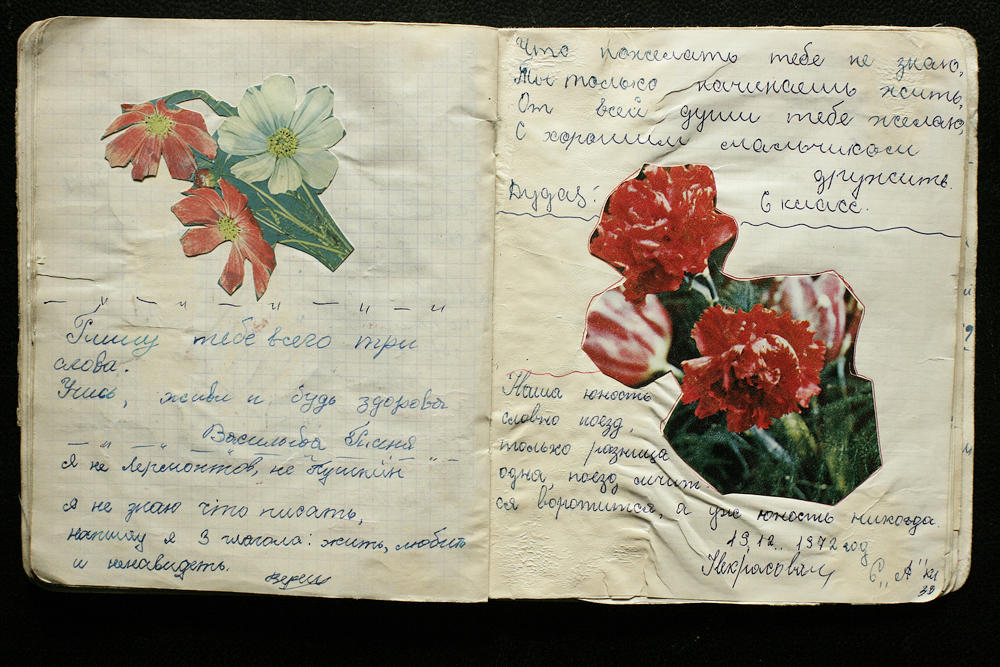 Пишу тебе всего три
слова.
Учись, живи и будь здорова
Васильева
Я не Лермонтов, не Пушкин
я не знаю что писать,
напишу я 3 глагола: жить, любить
и ненавидеть.
Что пожелать тебе не знаю,
Ты только начинаешь жить,
От всей души тебе желаю,
С хорошим мальчиком
дружить.
6 класс.
Наша юность
словно поезд,
только разница
одна, поезд мчит-
ся воротится, а уж юность никогда.
19.12. 1972 год
Некрасова
6 "А" кл